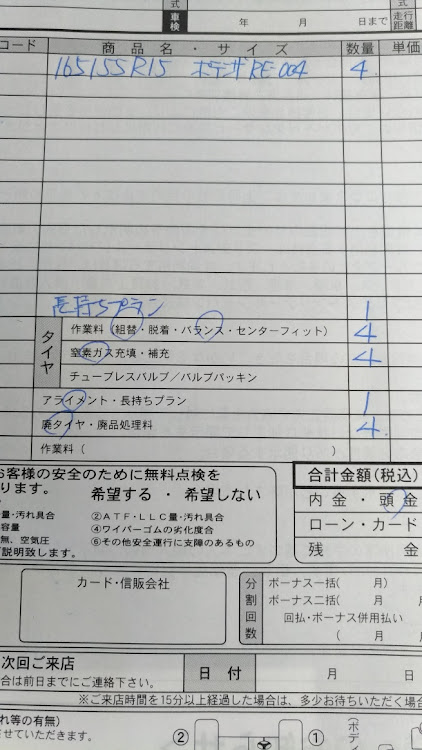 式 式
車検 年 月 日まで 走行距離
コード 商品名・サイズ 数量 単価
165/55R15 ポテンザRE-004 4
長持ちプラン 1
タイヤ
作業料(組替・脱着・バランス・センターフィット) 4
窒素ガス充填・補充 4
チューブレスバルブ/バルブパッキン
アライメント・長持ちプラン 1
廃タイヤ・廃品処理料 4
作業料( )
お客様の安全のために無料点検を
ります。 希望する ・ 希望しない
量・汚れ具合 ②ATF・LLC量・汚れ具合
容量 ④ワイパーゴムの劣化度合
無、空気圧 ⑥その他安全運行に支障のあるもの
説明致します。
合計金額(税込)
内金・頭金
ローン・カード
残金
カード・信販会社
分割回数
ボーナス一括( 月)
ボーナス二括( 月 月
回払・ボーナス併用払い
( 月 月
次回ご来店
合は前日までにご連絡下さい。
日付 月 日
※ご来店時間を15分以上経過した場合は、多少お待ちいただく場合
れ等の有無)
させていただきます。
② ①
(ボディ